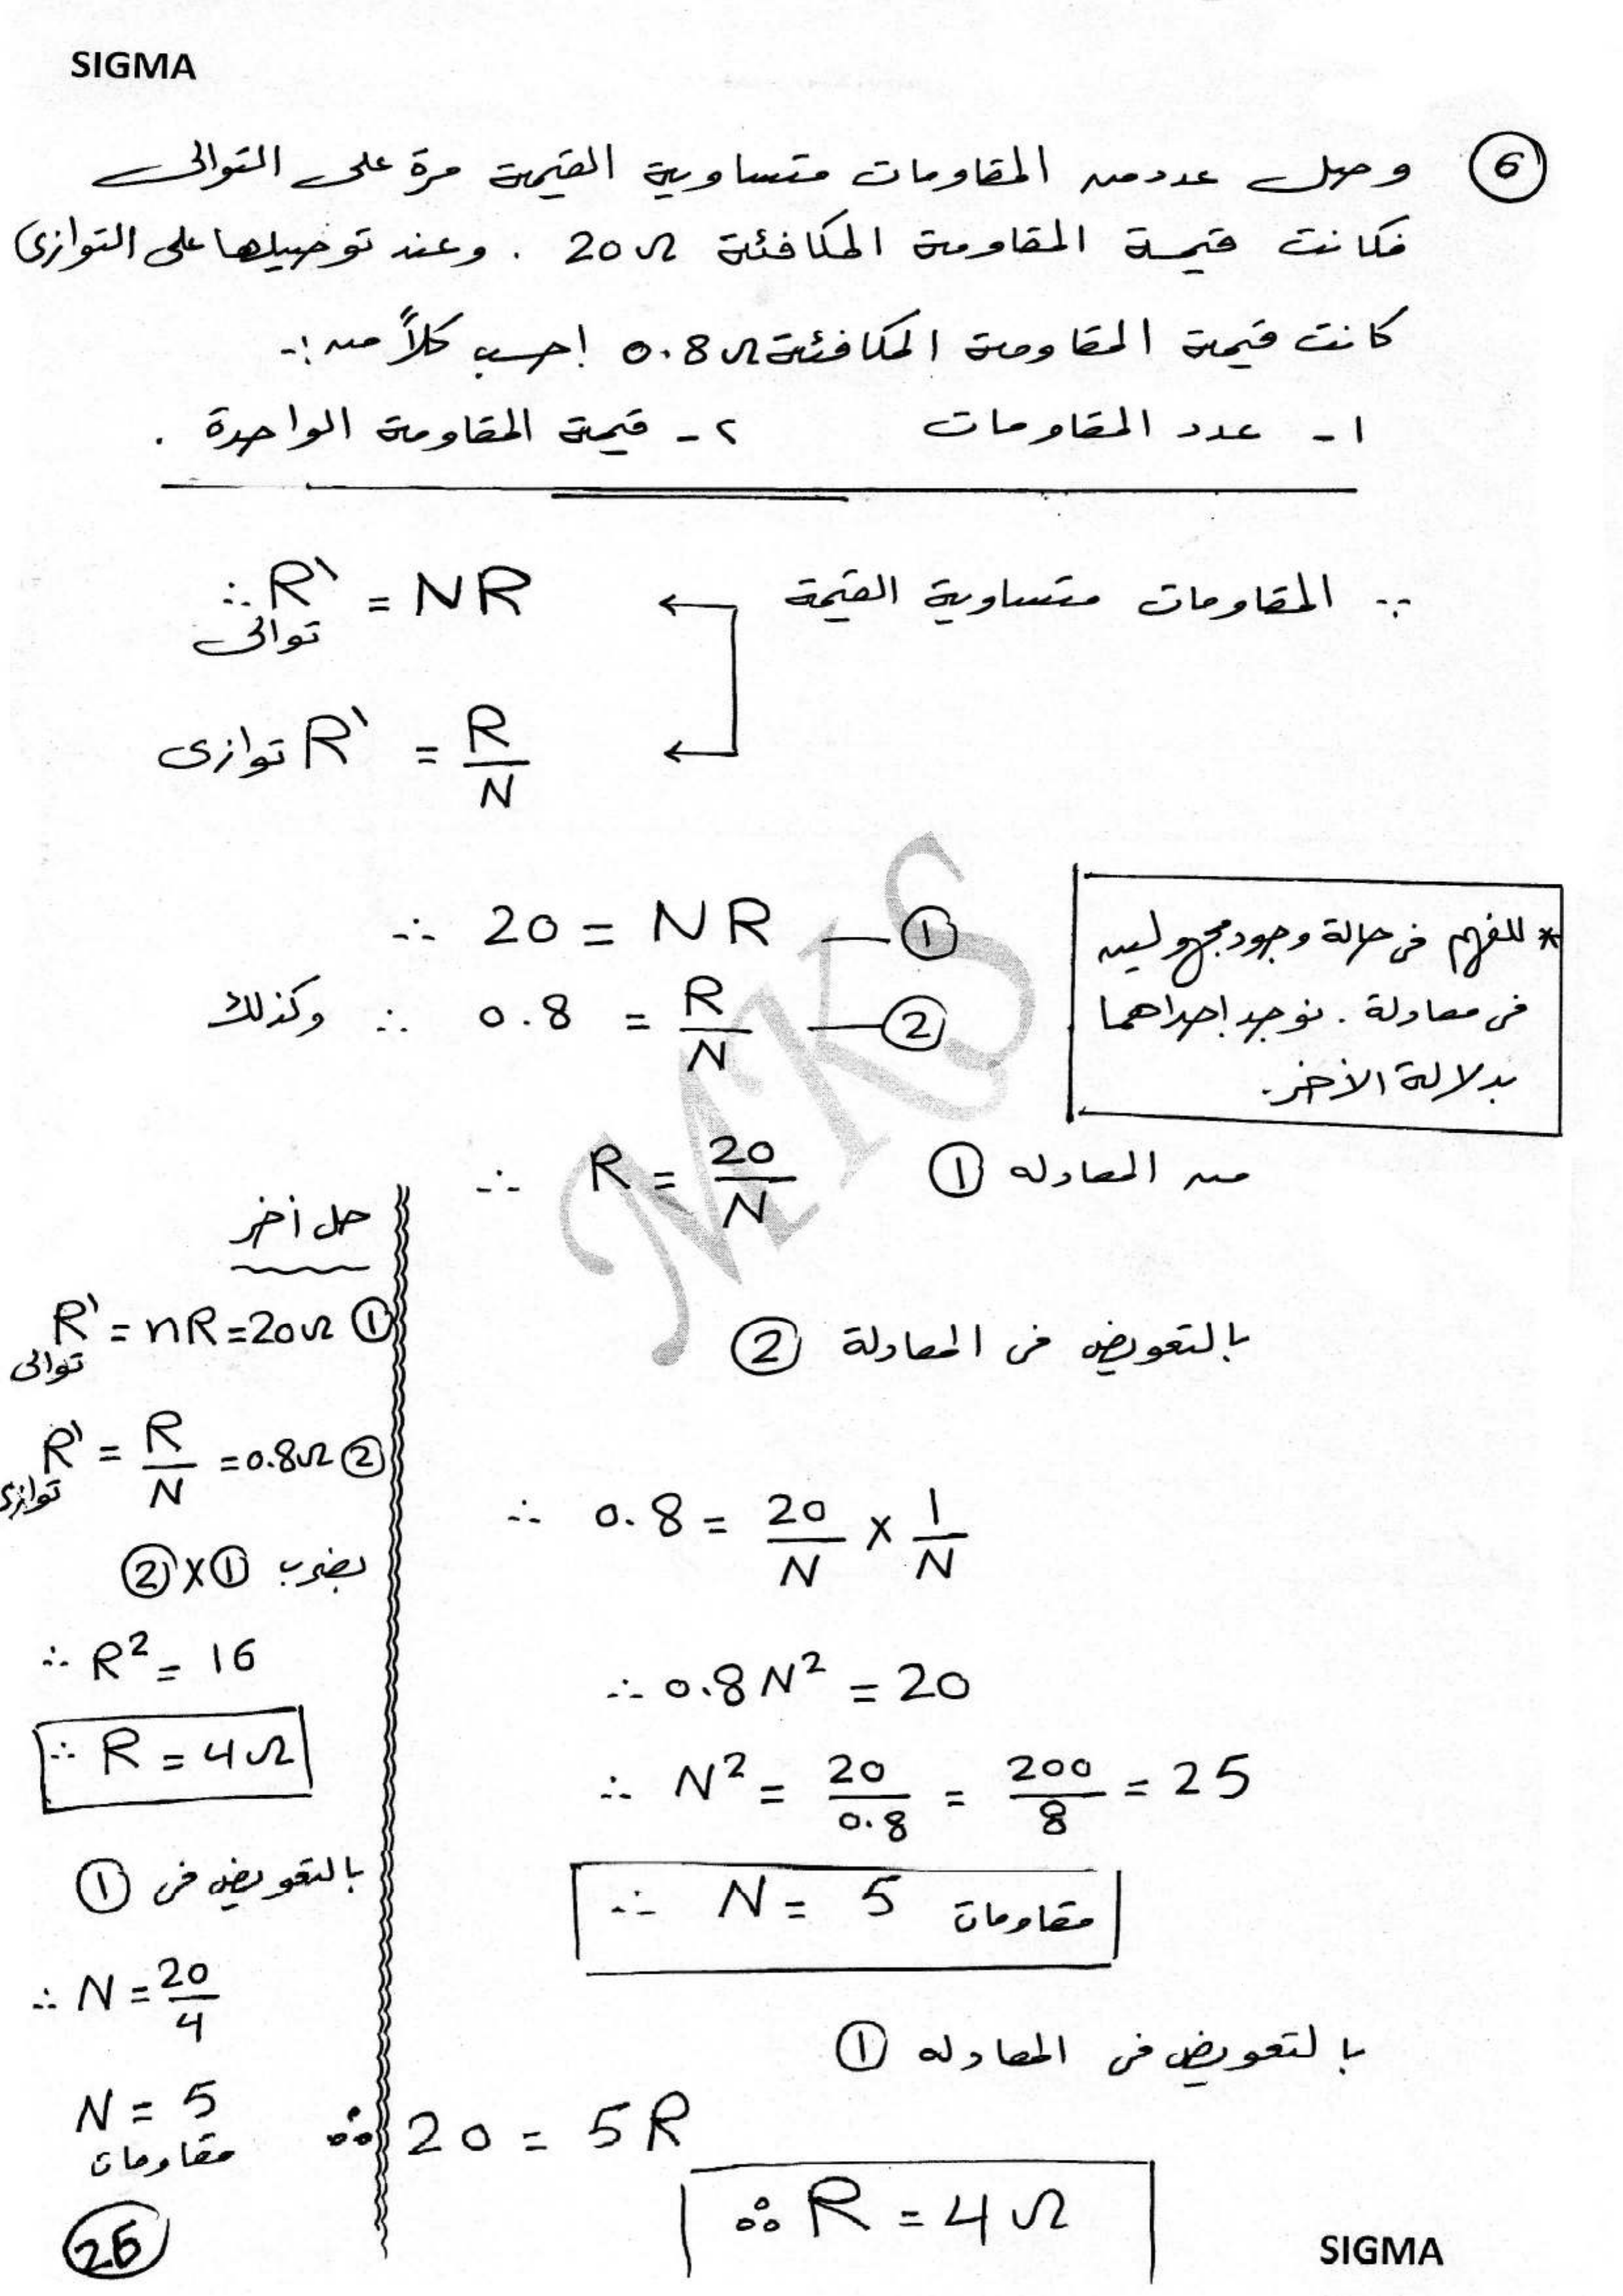 SIGMA
⑥ وصل عدد من المقاومات متساوية القيمة مرة على التوالى
فكانت قيمة المقاومة المكافئة 20Ω . وعند توصيلها على التوازى
كانت قيمة المقاومة المكافئة 0.8Ω احسب كلاً من :-
١- عدد المقاومات ٢- قيمة المقاومة الواحدة .
∵ المقاومات متساوية القيمة
∴ R' توالى = NR
R' توازى = R/N
∴ 20 = NR — ①
وكذلك ∴ 0.8 = R/N — ②
* للفهم فى حالة وجود مجهولين
فى معادلة . نوجد احداهما
بدلالة الأخر.
MKS
من المعادله ①
∴ R = 20/N
بالتعويض فى المعادلة ②
∴ 0.8 = 20/N × 1/N
∴ 0.8 N² = 20
∴ N² = 20/0.8 = 200/8 = 25
∴ N = 5 مقاومات
بالتعويض فى المعادله ①
∴ 20 = 5R
∴ R = 4Ω
حل أخر
R' توالى = nR = 20Ω ①
R' توازى = R/N = 0.8Ω ②
بضرب ① × ②
∴ R² = 16
∴ R = 4Ω
بالتعويض فى ①
∴ N = 20/4
N = 5
مقاومات
SIGMA